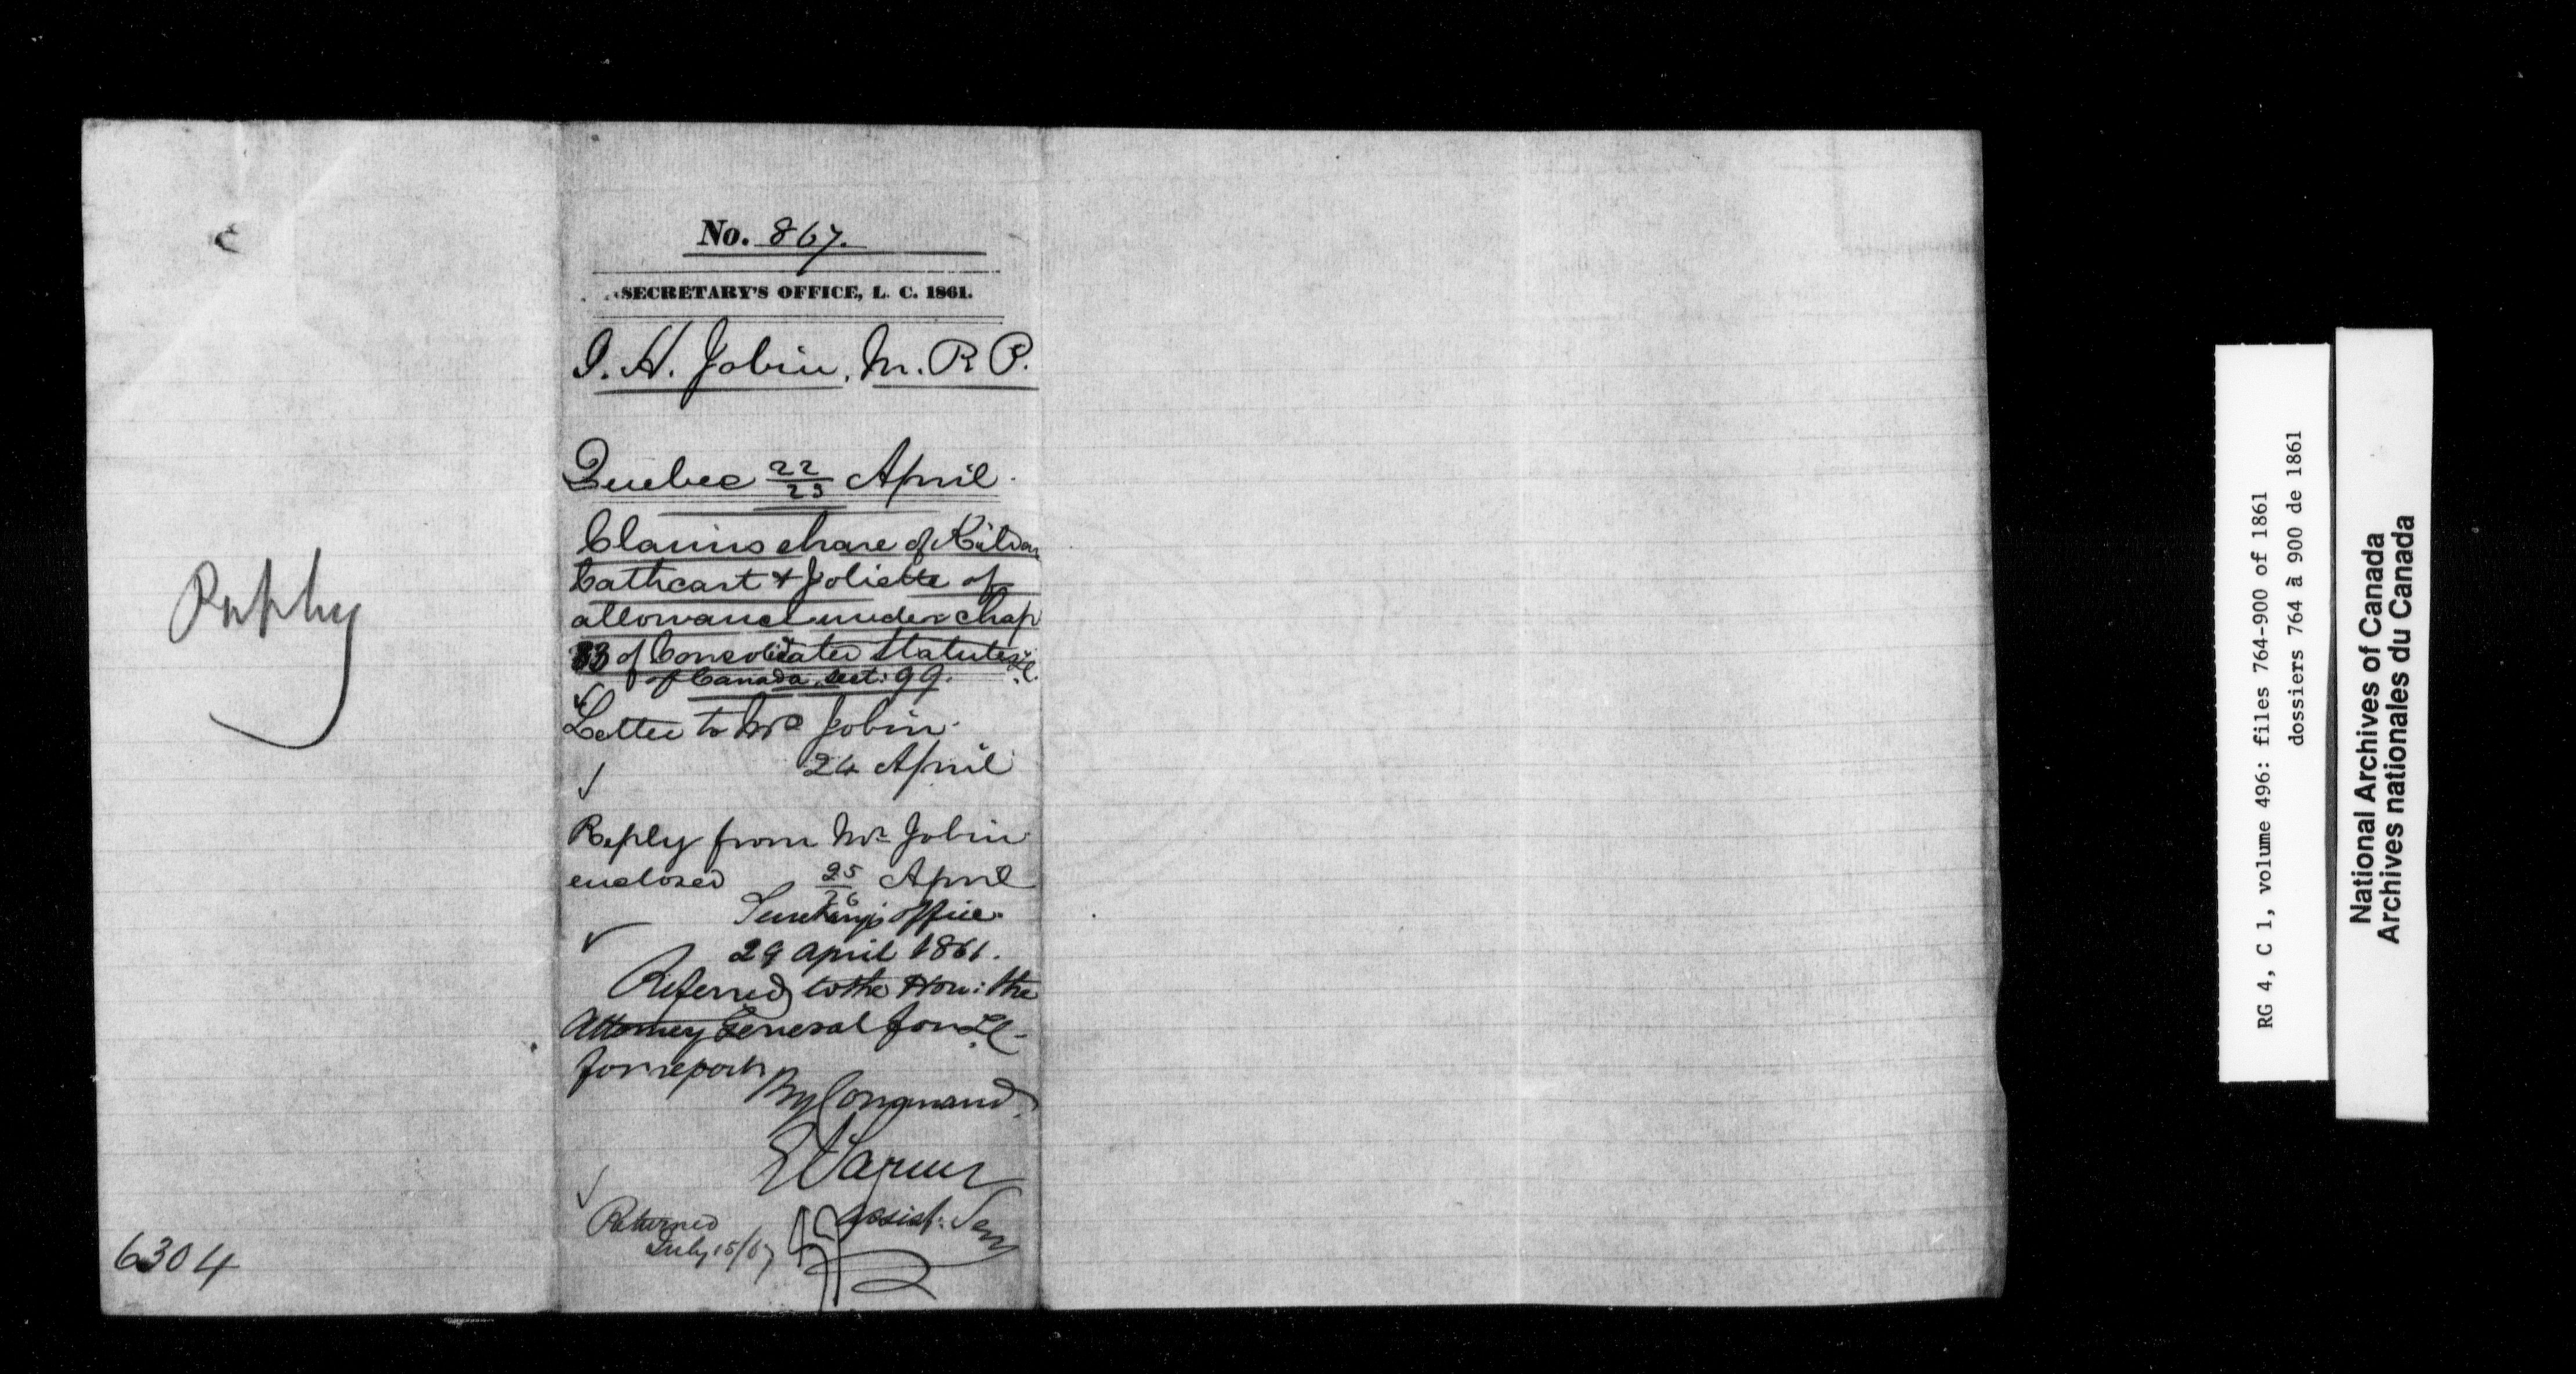 No. 867.
SECRETARY'S OFFICE, L. C. 1861.
J. H. Jobin, M. P. P.
Quebec 22/23 April.
Claims share of Kildare
Cathcart & Joliette of
allowance under Chap
33 of Consolidated Statutes
of Canada, sect: 99.
Letter to Mr Jobin.
24 April
Reply from Mr Jobin
enclosed 25/26 April
Secretary's office.
29 april 1861.
Referred to the Hon: the
Attorney General for L.C.
for report
By Command.
E Parent
Assist: Secy
Returned
July 15/67
Reply
6304
RG 4, C 1, volume 496: files 764-900 of 1861
dossiers 764 à 900 de 1861
National Archives of Canada
Archives nationales du Canada